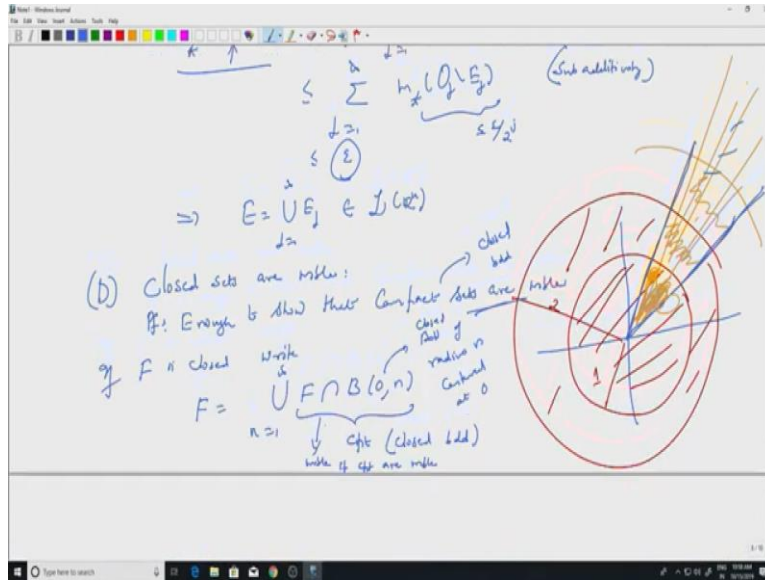 Note1 - Windows Journal
File Edit View Insert Actions Tools Help
≤ ∑ m_*(O_j \ E_j) (Sub additivity)
j=1
≤ ε/2^j
≤ ε
⇒ E = ∪ E_j ∈ L(R^n)
j=1
(D) Closed sets are mble:
Pf: Enough to show that Compact sets are mble
closed
bdd
If F is closed write
F = ∪ F ∩ B(0, n)
n=1
closed
Ball of
radius n
Centered
at 0
cpt (closed bdd)
mble if cpt are mble
1
2
Type here to search